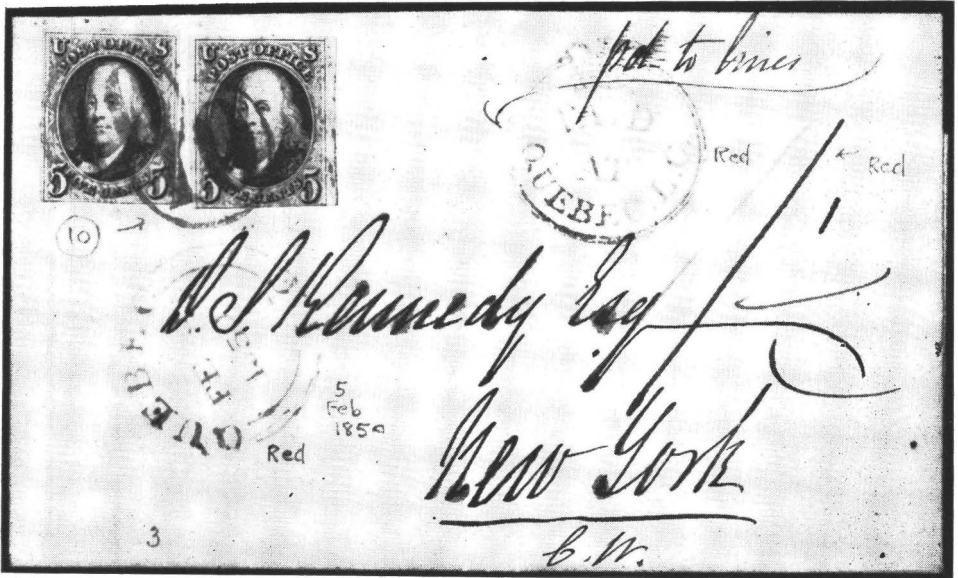 U POST OFFICE S
5 FIVE CENTS 5
U POST OFFICE S
5 FIVE CENTS 5
pd to lines
PAID
AT
QUEBEC L.C.
Red
Red
10
D. S. Kennedy Esq
QUEBEC
FE
5
Feb
1850
Red
New York
C.W.
3